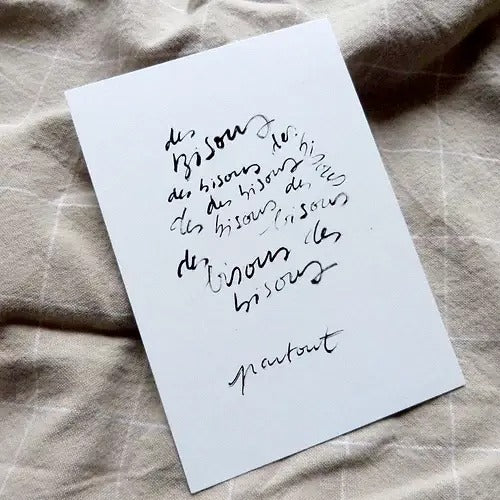 des
bisous
des bisous des
des bisous bisous
des bisous des des
des bisous
bisous des
bisous
partout